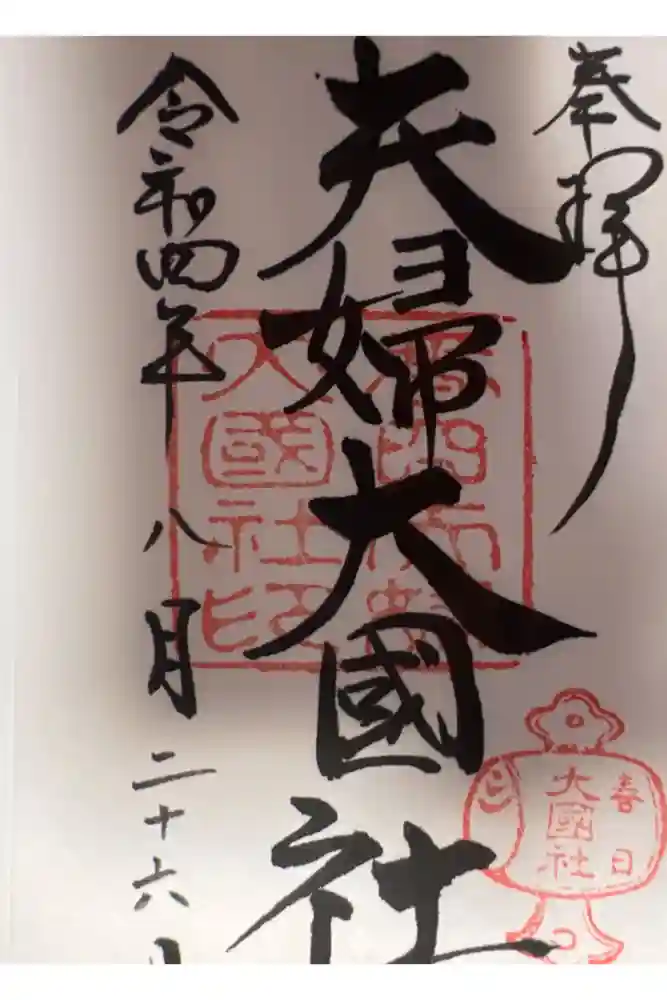 奉拝
夫婦大國社
令和四年八月二十六日
春日
大國社
大國社印